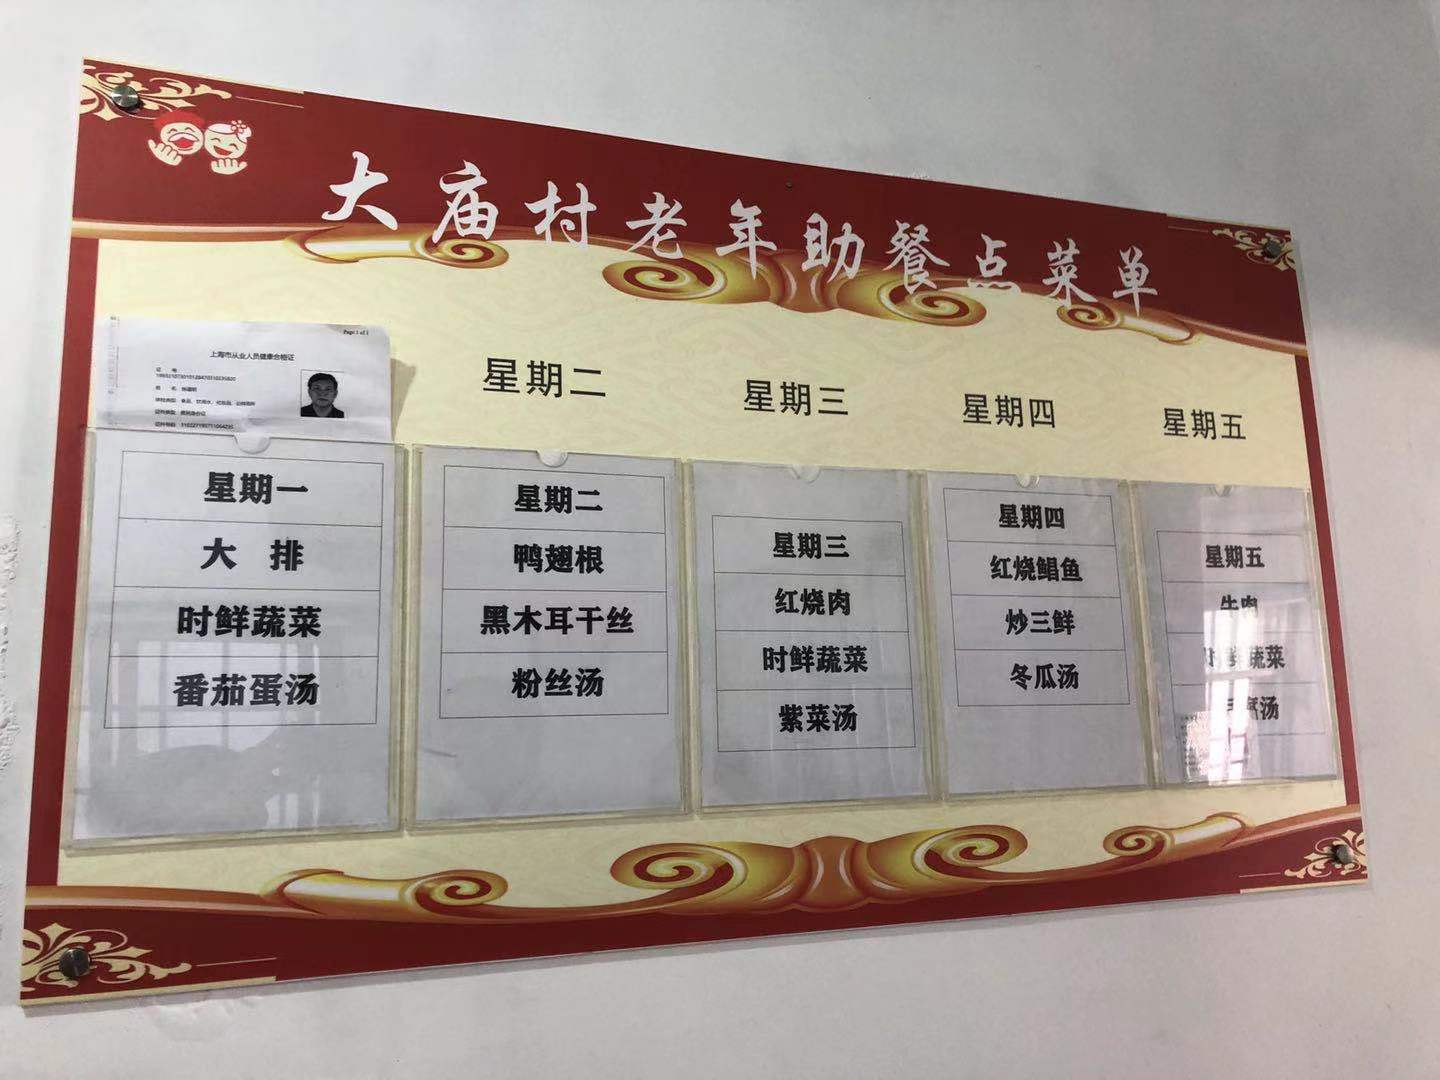 大庙村老年助餐点菜单
Page 1 of 1
上海市从业人员健康合格证
星期二
星期三
星期四
星期五
星期一
大 排
时鲜蔬菜
番茄蛋汤
星期二
鸭翅根
黑木耳干丝
粉丝汤
星期三
红烧肉
时鲜蔬菜
紫菜汤
星期四
红烧鲳鱼
炒三鲜
冬瓜汤
星期五
牛肉
时鲜蔬菜
汤